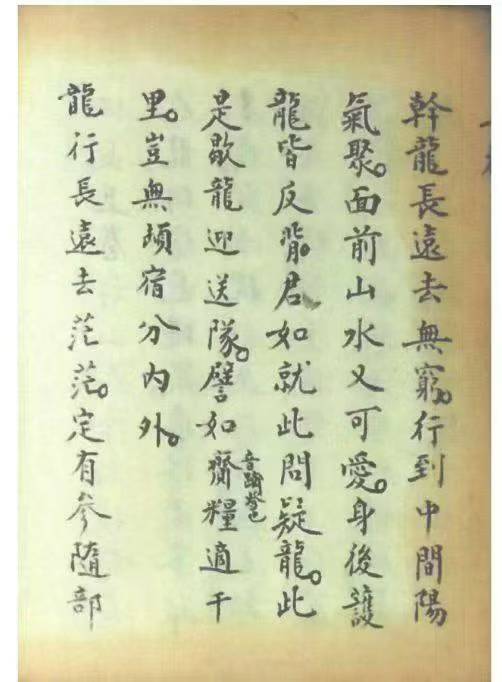 幹龍長遠去無窮。行到中間陽
氣聚。面前山水又可愛。身後護
龍皆反背。君如就此問疑龍。此
是歇龍迎送隊。譬如齎糧適千
里。豈無頓宿分內外。
龍行長遠去茫茫。定有參隨部